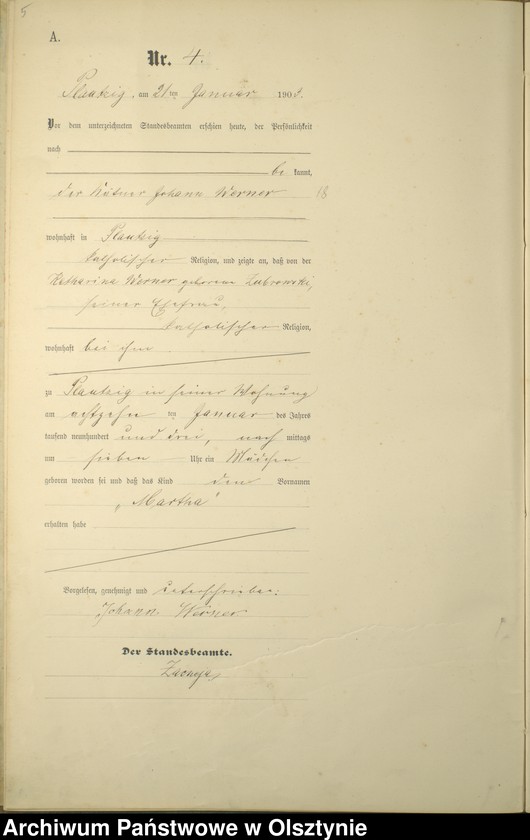 5
A.
Nr. 4.
Plautzig, am 21ten Januar 1903.
Vor dem unterzeichneten Standesbeamten erschien heute, der Persönlichkeit
nach
be kannt,
der Kätner Johann Werner 18
wohnhaft in Plautzig
katholischer Religion, und zeigte an, daß von der
Katharina Werner geborene Zubrowski,
seiner Ehefrau,
katholischer Religion,
wohnhaft bei ihm
zu Plautzig in seiner Wohnung
am achtzehn ten Januar des Jahres
tausend neunhundert und drei, nach mittags
um sieben Uhr ein Mädchen
geboren worden sei und daß das Kind den Vornamen
„Martha"
erhalten habe
Vorgelesen, genehmigt und unterschrieben.
Johann Werner
Der Standesbeamte.
Archiwum Państwowe w Olsztynie